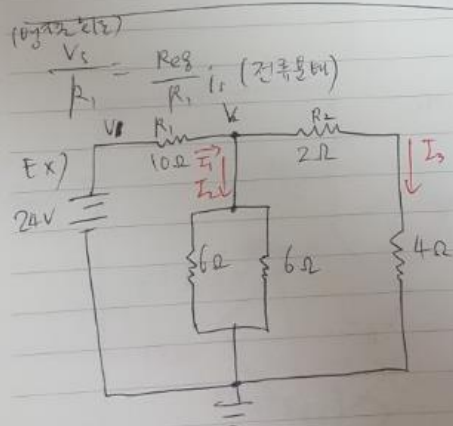 (병렬회로)
Vs/R₁ = Req/R₁ is (전류분배)
V₁ R₁ V₂ R₂
Ex) 10Ω I₁ 2Ω I₃
I₂
24V
6Ω 6Ω 4Ω